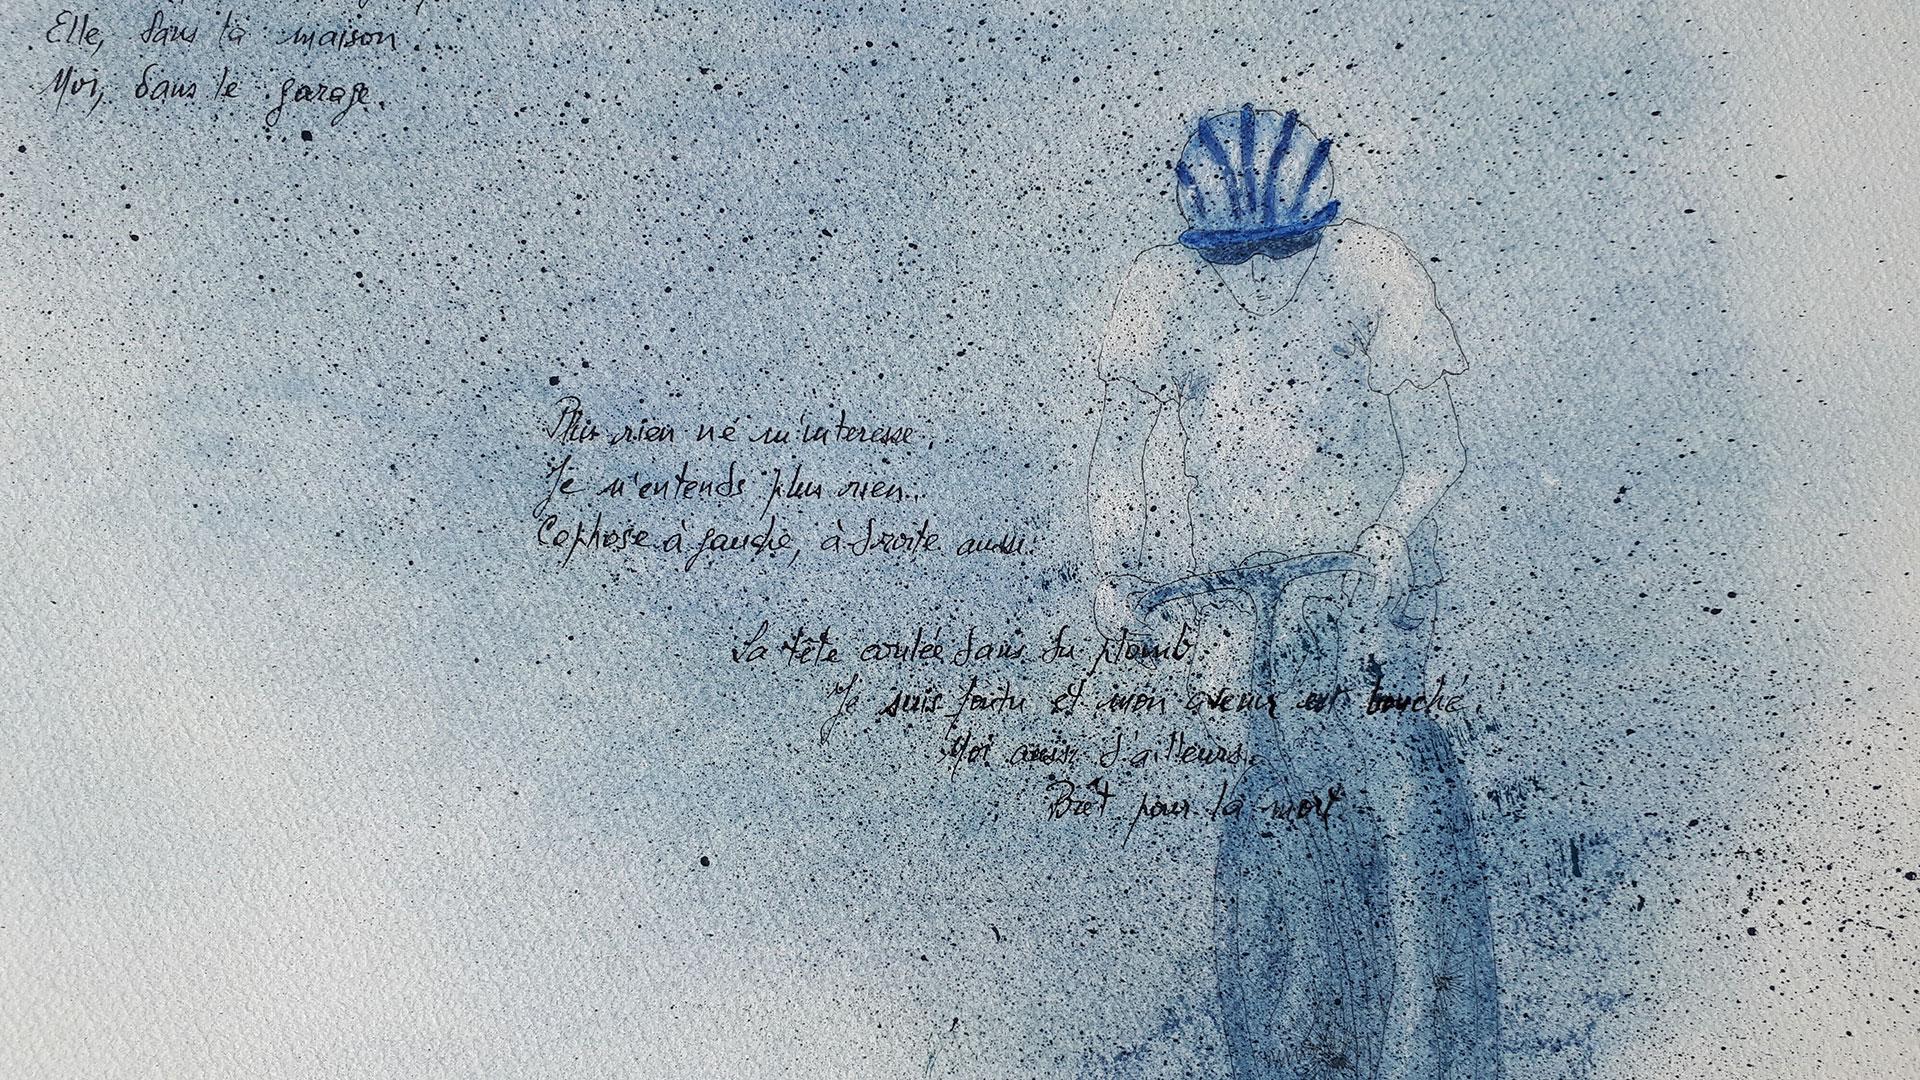 Elle, dans la maison.
Moi, dans le garage.
Plus rien né m'interesse,
Je n'entends plus rien..
Cophose à gauche, à droite aussi.
La tête coulée dans du plomb.
Je suis foutu et mon avenir est bouché.
Moi aussi d'ailleurs.
Prêt pour la mort.